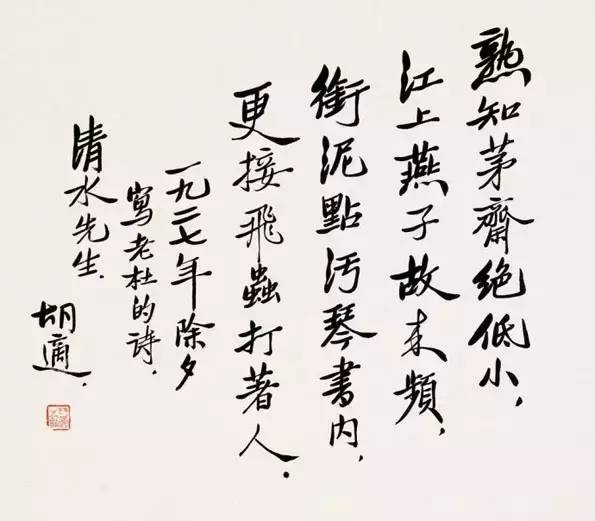 熟知茅齋绝低小，
江上燕子故来頻，
銜泥點污琴書内，
更接飛蟲打著人．
一九二七年除夕
寫老杜的诗．
清水先生．
胡適．